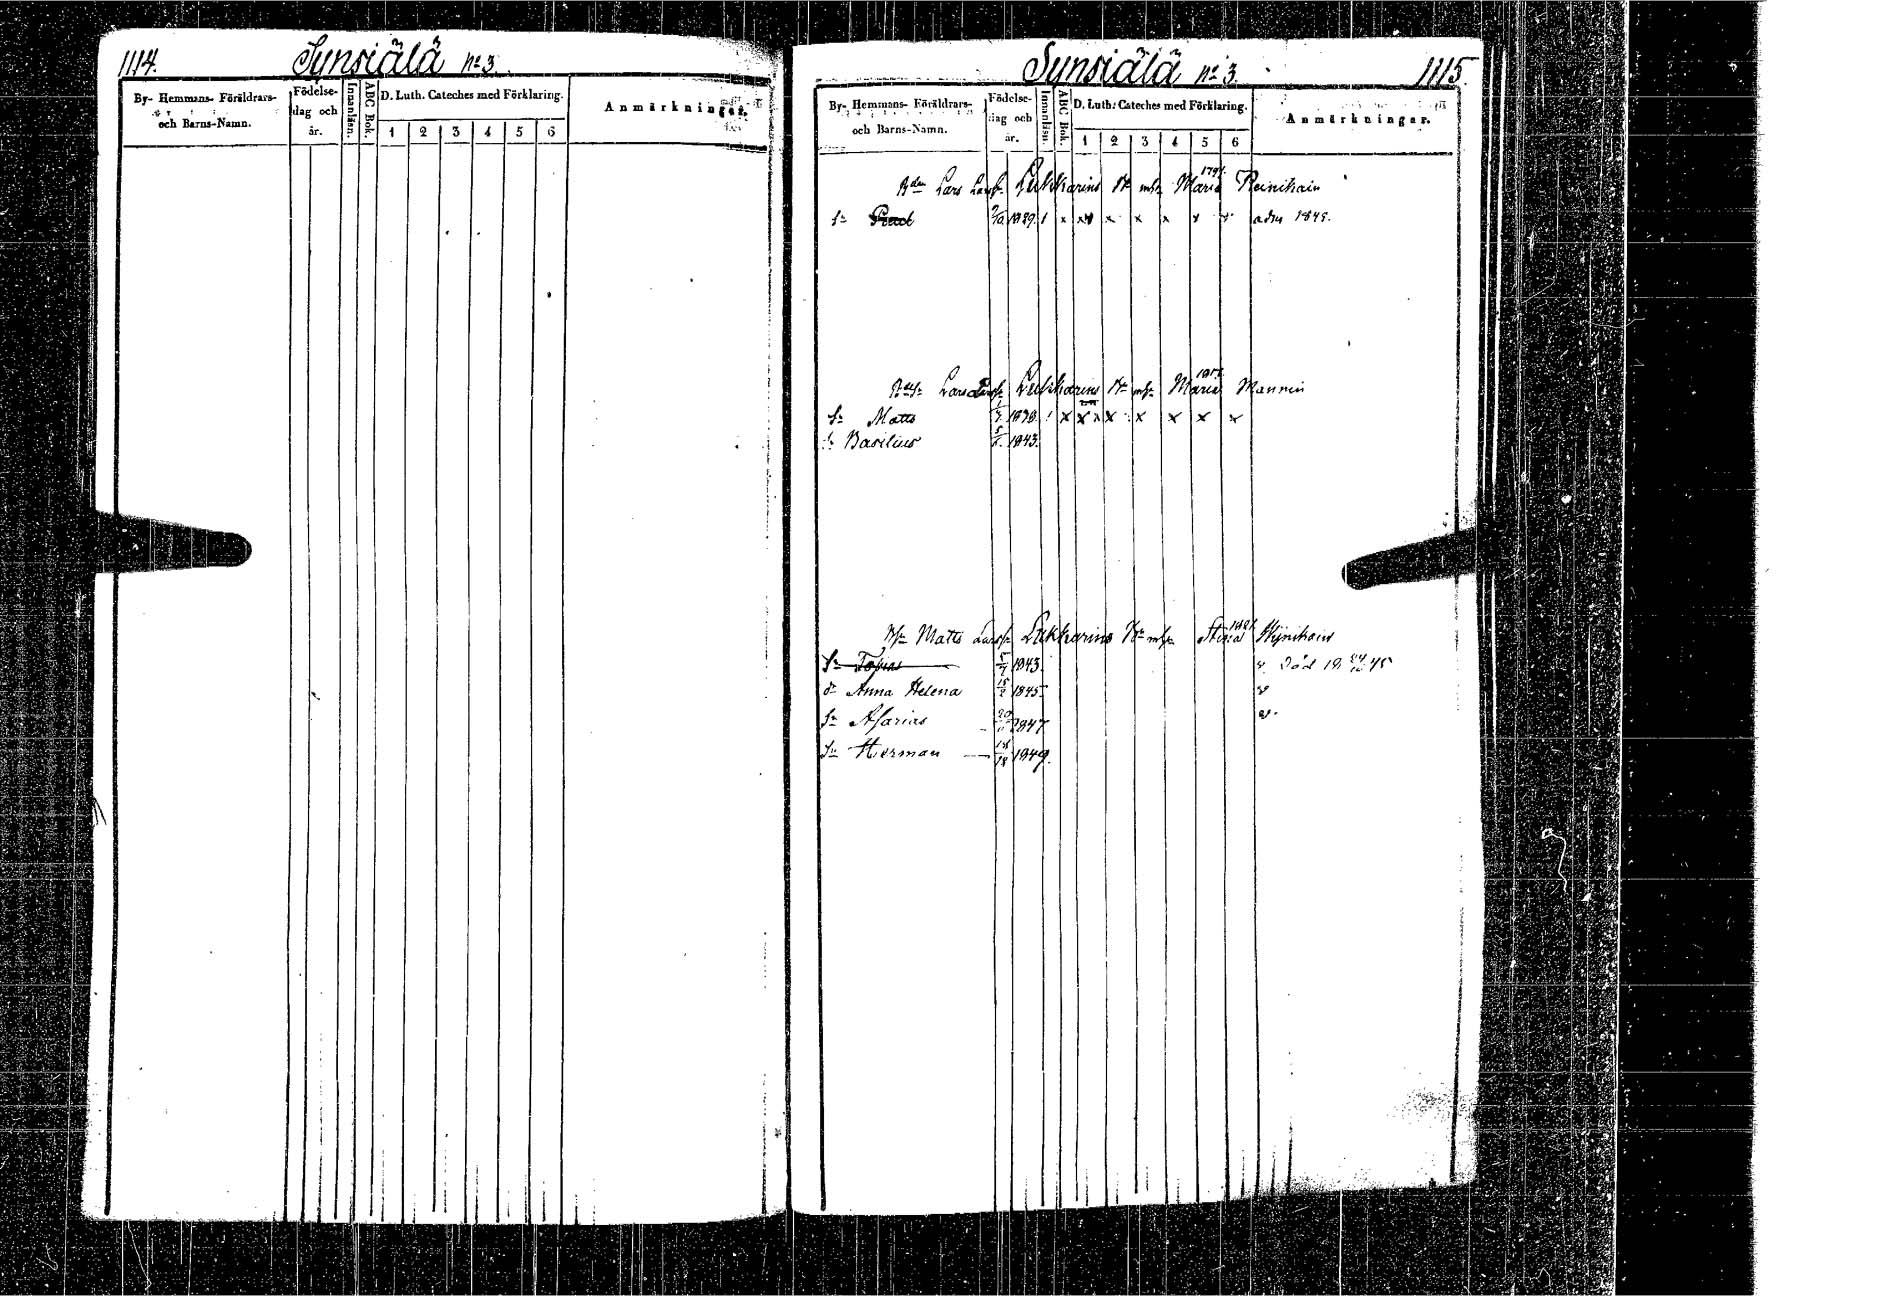 1114. Synsiälä No 3.
By- Hemmans- Föräldrars- och Barns-Namn.
Födelse-dag och år.
Innanläsn.
ABC Bok.
D. Luth. Cateches med Förklaring.
1 2 3 4 5 6
Anmärkningar.
Synsiälä No 3. 1115.
By- Hemmans- Föräldrars- och Barns-Namn.
Födelse-dag och år.
Innanläsn.
ABC Bok.
D. Luth: Cateches med Förklaring.
1 2 3 4 5 6
Anmärkningar.
Lars Larss. Lukkarins Maria Reinikain
Sn 1829. x x x x x x x adm 1845.
Lars Larss. Lukkarins Maria Mannin
Sn Matts x x x x x x x x
Sn Basilius 1843.
Matts Larss. Lukkarins Stina
Sn Tobias 5/7 1843. Död 45
dr Anna Helena 15/2 1845
Sn Asarias 1847
Sn Herman 1849.